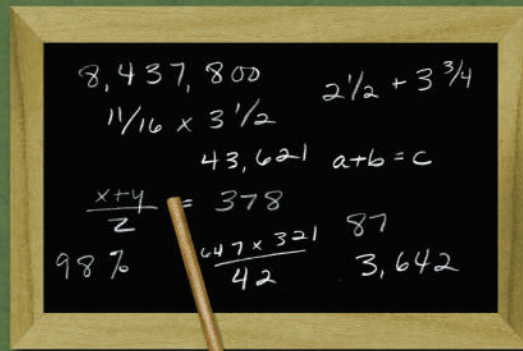 8,437,800
2 1/2 + 3 3/4
11/16 x 3 1/2
43,621
a+b=c
x+y/z = 378
87
647 x 321/42
98%
3,642